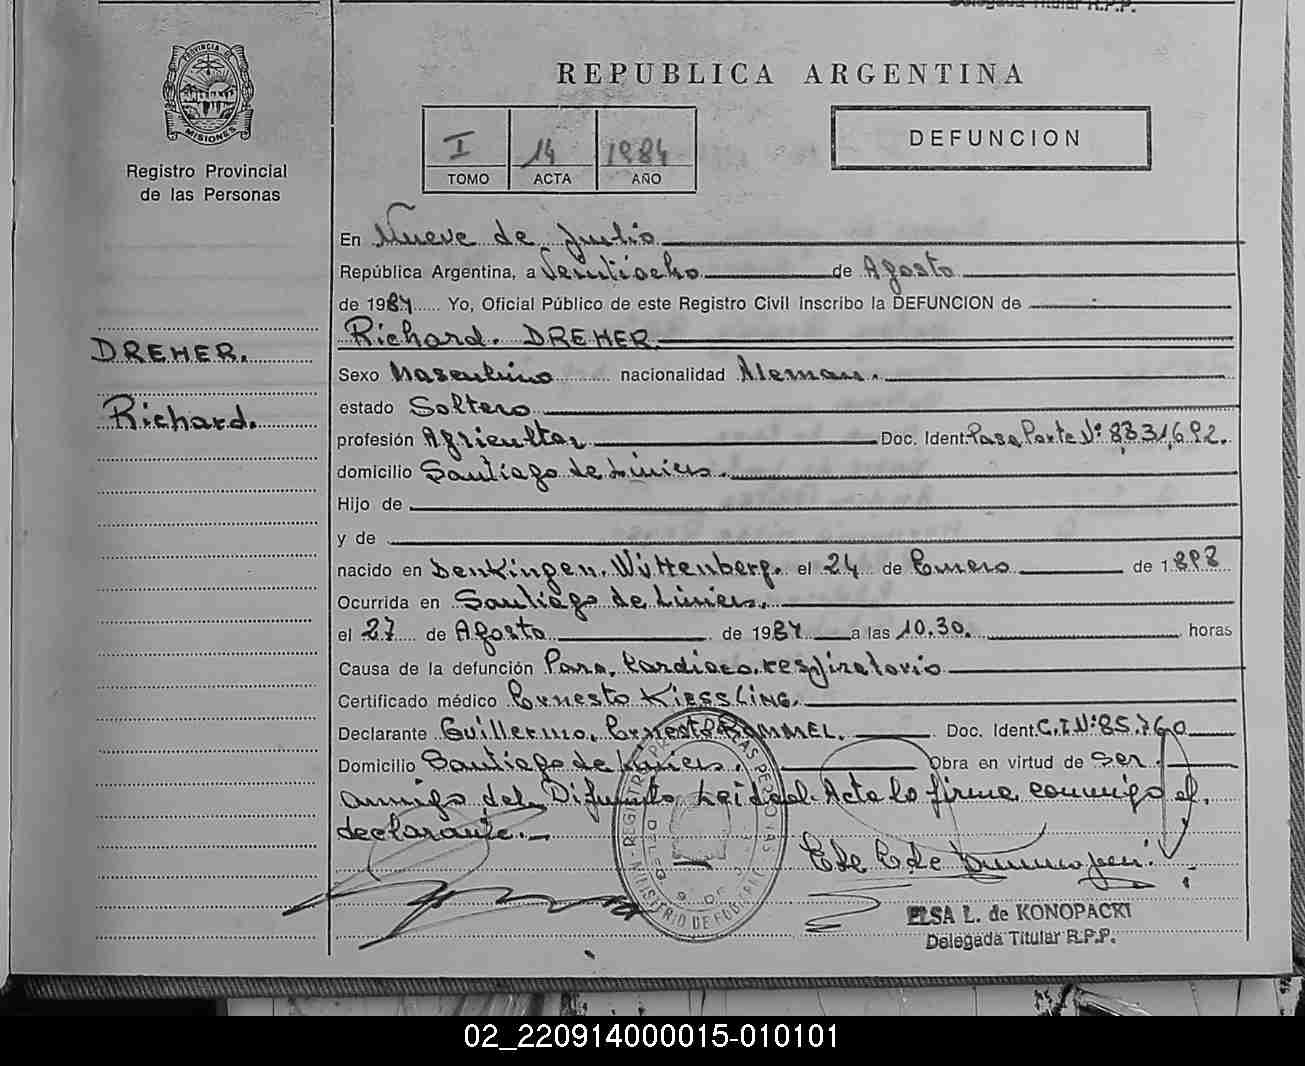 Delegada Titular R.P.P.
PROVINCIA DE
MISIONES
Registro Provincial
de las Personas
REPUBLICA ARGENTINA
I 14 1984
TOMO ACTA AÑO
DEFUNCION
En Nueve de Julio
República Argentina, a Veintiocho de Agosto
de 1984 Yo, Oficial Público de este Registro Civil Inscribo la DEFUNCION de
Richard. DREHER.
DREHER.
Richard.
Sexo Masculino nacionalidad Aleman.
estado Soltero
profesión Agricultor Doc. Ident. Pasa Porte Nº 8331692.
domicilio Santiago de Liniers.
Hijo de
y de
nacido en Denkingen. Wittenberg. el 24 de Enero de 1898
Ocurrida en Santiago de Liniers.
el 27 de Agosto de 1984 a las 10.30. horas
Causa de la defunción Paro, Cardiaco, respiratorio
Certificado médico Ernesto KIESSLING.
Declarante Guillermo, Ernesto ROMMEL. Doc. Ident. C.I.Nº 85.760
Domicilio Santiago de Liniers. Obra en virtud de Ser
amigo del Difunto Leida el Acta lo firma conmigo el
declarante.
ELSA L. de KONOPACKI
Delegada Titular R.P.P.
02_220914000015-010101